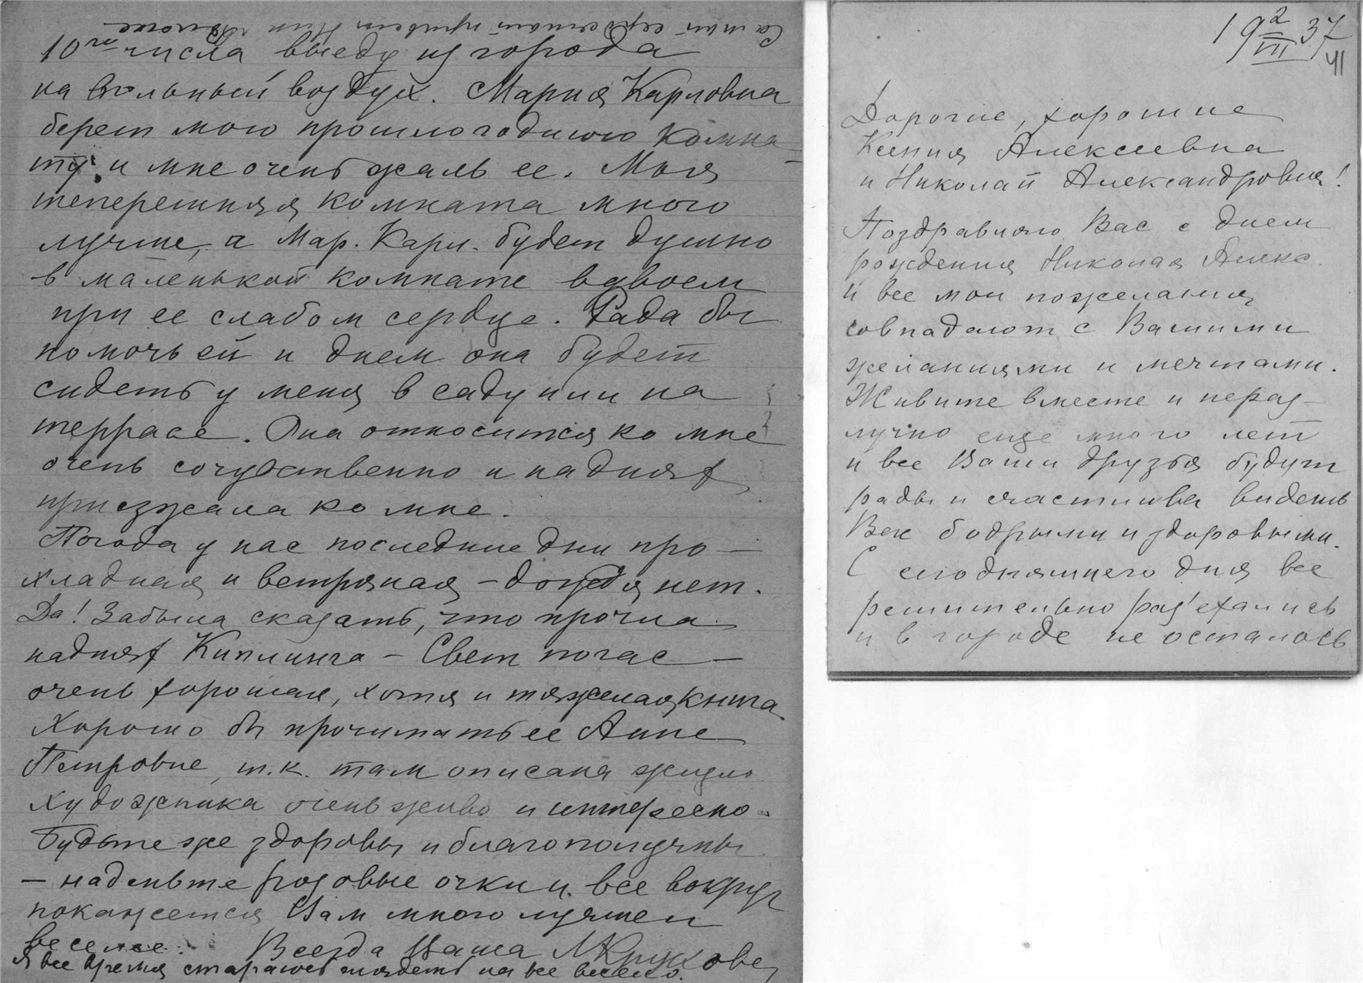 19 2/VII 37
41
Дорогие, хорошие
Ксения Алексеевна
и Николай Александрович!
Поздравляю Вас с днем
рождения Николая Алекс.
и все мои пожелания
совпадают с Вашими
желаниями и мечтами.
Живите вместе и нераз-
лучно еще много лет
и все Ваши друзья будут
рады и счастливы видеть
Вас бодрыми и здоровыми.
С сегодняшнего дня все
решительно раз'ехались
и в городе не осталось
10го числа выеду из города
на вольный воздух. Мария Карловна
берет мою прошлогоднюю комна-
ту и мне очень жаль ее. Моя
теперешняя комната много
лучше, а Мар. Карл. будет душно
в маленькой комнате вдвоем
при ее слабом сердце. Рада бы
помочь ей и днем она будет
сидеть у меня в саду или на
террасе. Она относится ко мне
очень сочувственно и на днях
приезжала ко мне.
Погода у нас последние дни про-
хладная и ветряная – дождя нет.
Да! Забыла сказать, что прочла
на днях Киплинга – Свет погас –
очень хорошая, хотя и тяжелая книга.
Хорошо бы прочитать ее Анне
Петровне, т.к. там описана жизнь
художника очень живо и интересно.
Будьте же здоровы и благополучны
– наденьте розовые очки и все вокруг
покажется Вам много лучше и
веселее. Всегда Ваша М Крюкова
Я все время стараюсь глядеть на все весело.
Самый сердечный привет